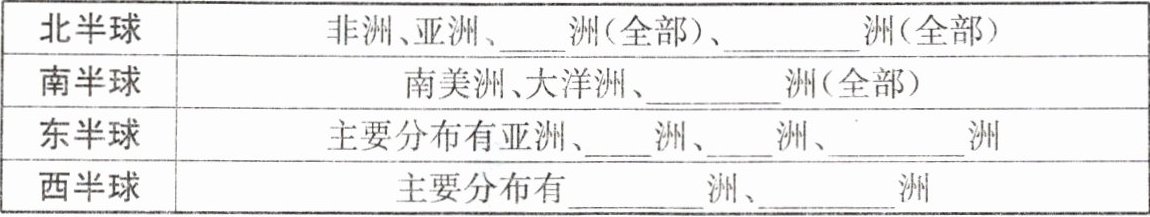 北半球 非洲、亚洲、____洲(全部)、________洲(全部)
南半球 南美洲、大洋洲、________洲(全部)
东半球 主要分布有亚洲、____洲、____洲、________洲
西半球 主要分布有________洲、________洲